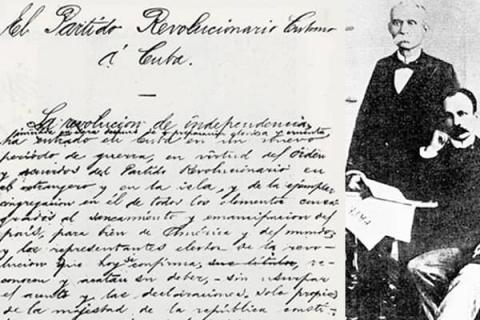 El Partido Revolucionario Cubano
á Cuba.
La revolucion de independencia,
iniciada en Yara despues de preparacion gloriosa y cruenta,
ha entrado en Cuba en un nuevo
período de guerra, en virtud del orden
y acuerdos del Partido Revolucionario en
el extranjero y en la isla, y de la ejemplar
congregacion en él de todos los elementos consa-
grados al saneamiento y emancipacion del
país, para bien de América y del mundo;
y los representantes electos de la revo-
lucion que hoy se confirma, re-
conocen y acatan su deber, - sin usurpar
el acento y las declaraciones solo propias
de la majestad de la república consti-